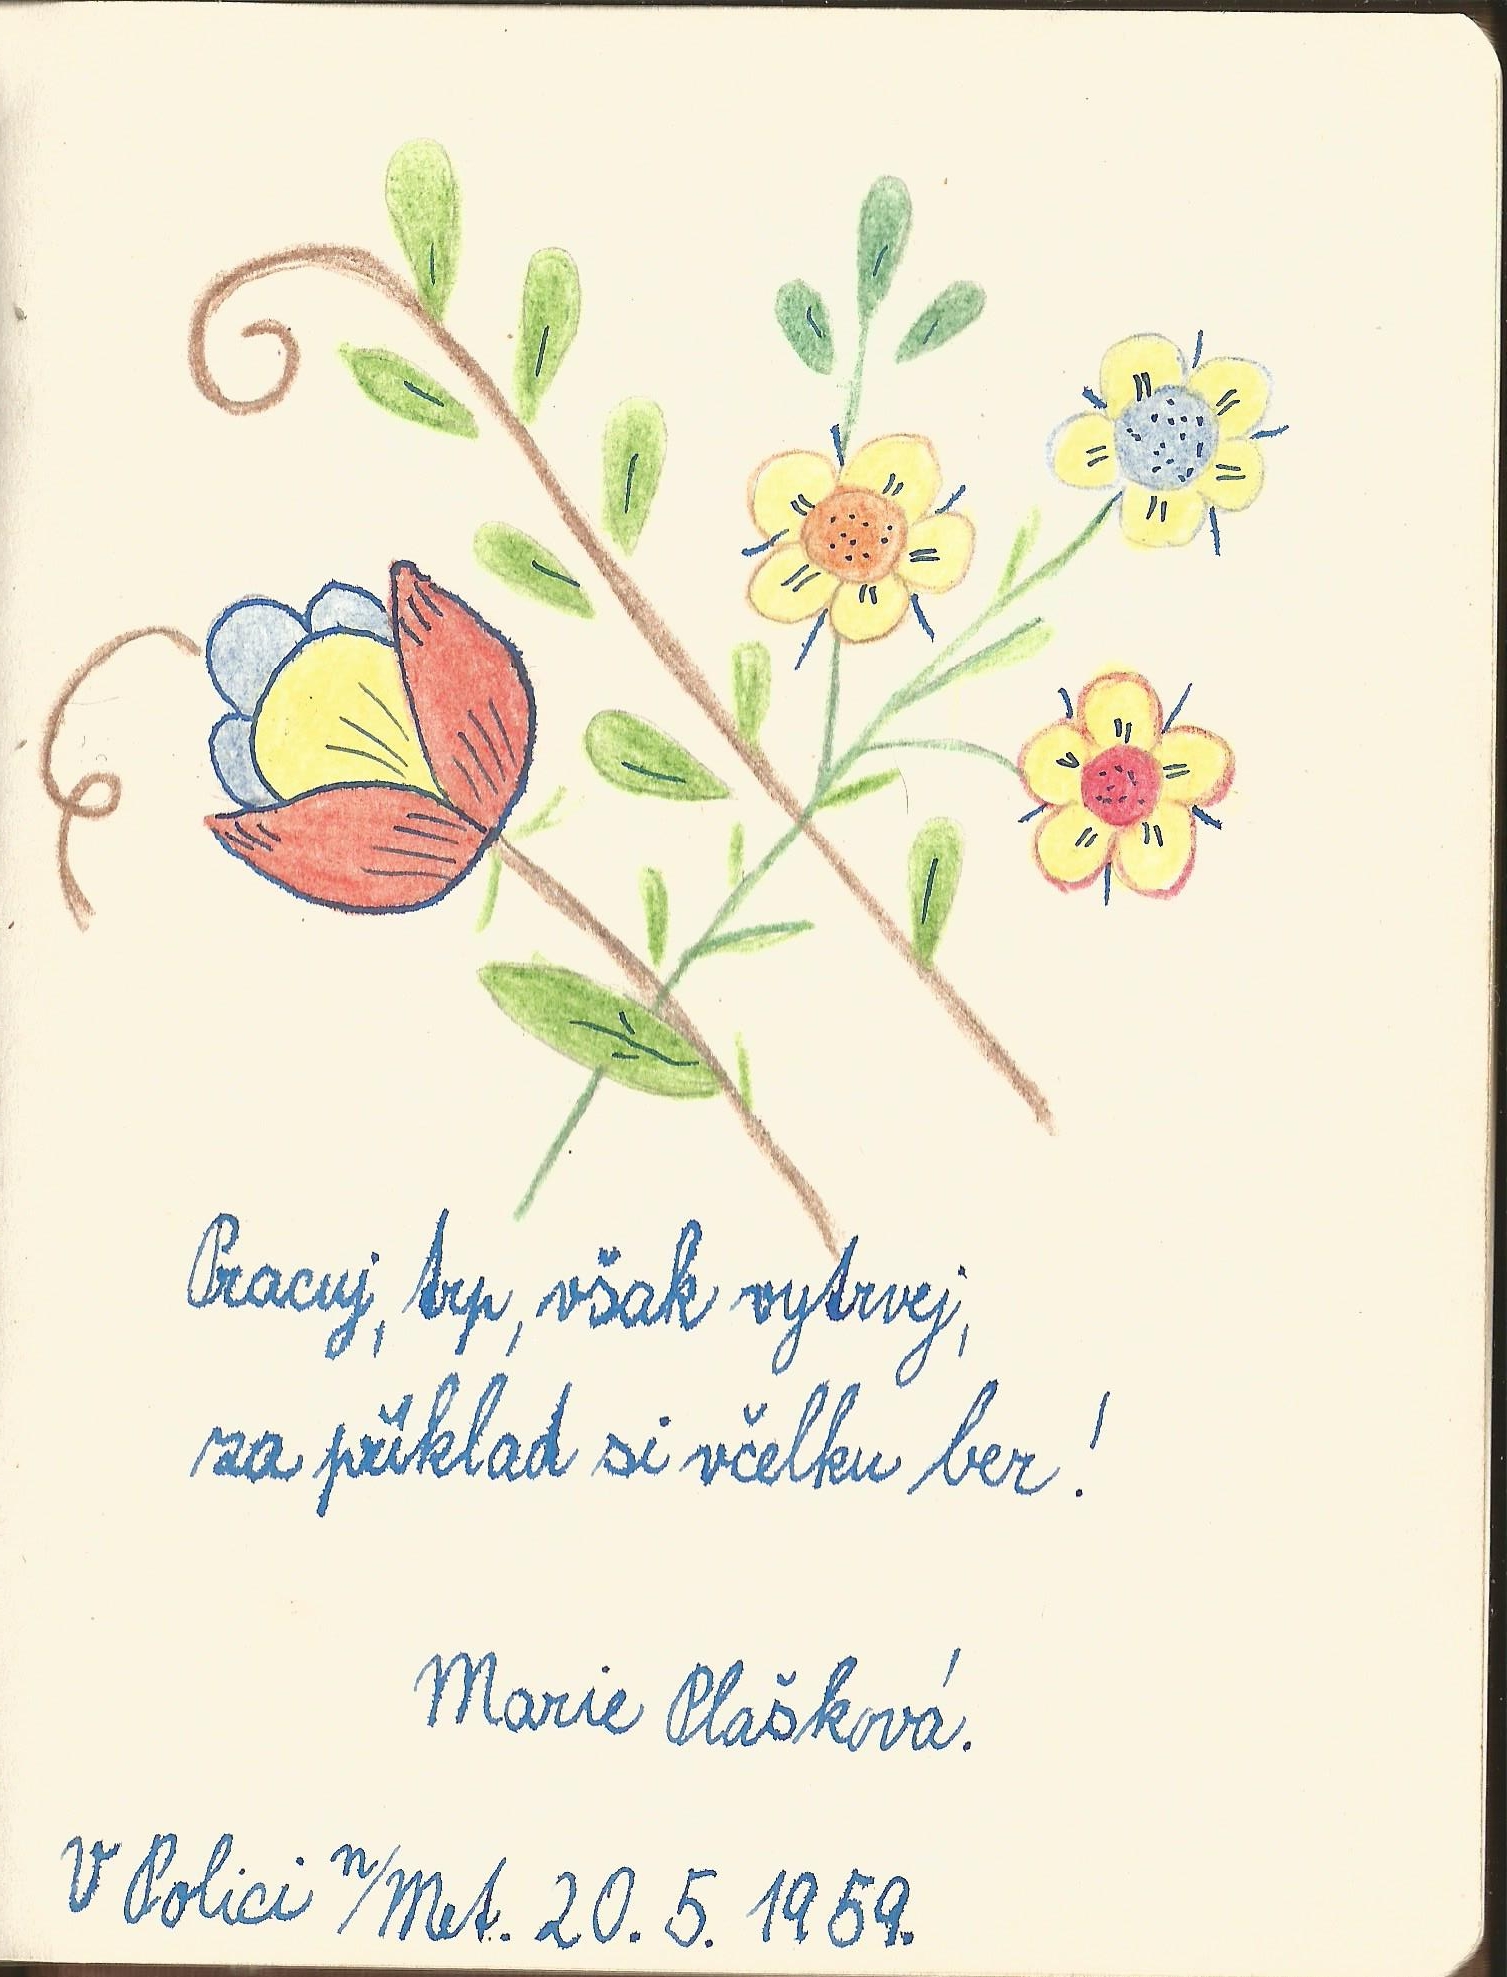 Pracuj, trp, však vytrvej,
za příklad si včelku ber!
Marie Plašková.
V Polici n/Met. 20. 5. 1959.